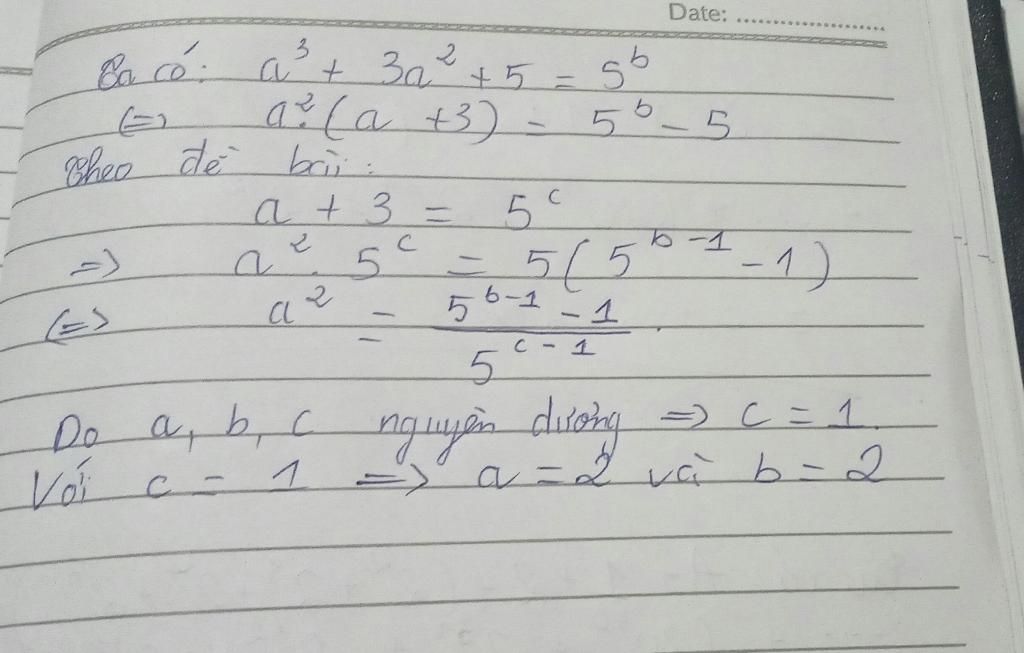 Date: ........................
Ta có: a³ + 3a² + 5 = 5ᵇ
(=) a².(a +3) = 5ᵇ - 5
Theo đề bài:
a + 3 = 5ᶜ
=> a² . 5ᶜ = 5(5ᵇ⁻¹ - 1)
(=> a² = (5ᵇ⁻¹ - 1) / 5ᶜ⁻¹ .
Do a, b, c nguyên dương => c = 1.
Với c = 1 => a = 2 và b = 2